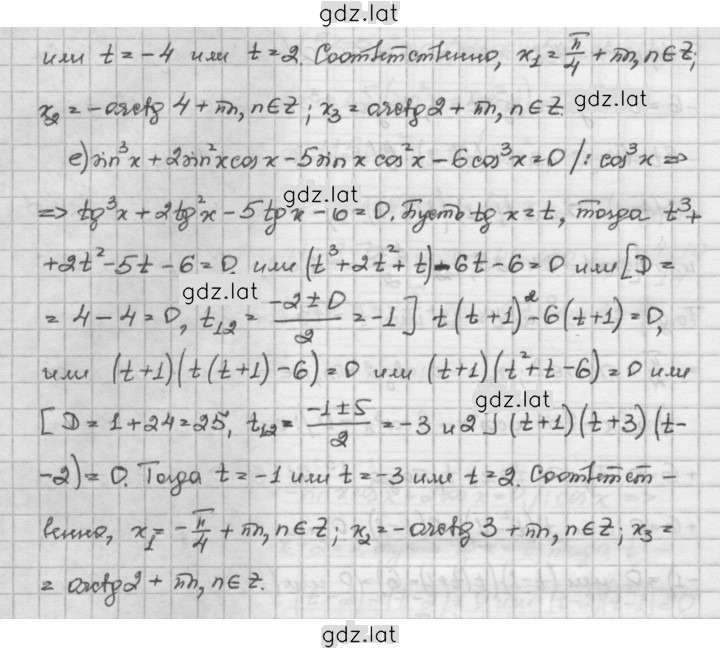 gdz.lat
или t = -4 или t = 2. Соответственно, x₁ = π/4 + πn, n ∈ Z;
x₂ = -arctg 4 + πn, n ∈ Z; x₃ = arctg 2 + πn, n ∈ Z. gdz.lat
е) sin³x + 2sin²x cos x - 5sin x cos²x - 6cos³x = 0 /: cos³x ⇒
gdz.lat
⇒ tg³x + 2tg²x - 5tg x - 6 = 0. Пусть tg x = t, тогда t³ +
+ 2t² - 5t - 6 = 0. или (t³ + 2t² + t) - 6t - 6 = 0 или [D =
gdz.lat
= 4 - 4 = 0, t₁₂ = (-2 ± 0)/2 = -1] t(t+1)² - 6(t+1) = 0,
или (t+1)(t(t+1) - 6) = 0 или (t+1)(t² + t - 6) = 0 или
gdz.lat
[D = 1 + 24 = 25, t₁₂ = (-1 ± 5)/2 = -3 и 2] (t+1)(t+3)(t-
-2) = 0. Тогда t = -1 или t = -3 или t = 2. Соответст-
венно, x₁ = -π/4 + πn, n ∈ Z; x₂ = -arctg 3 + πn, n ∈ Z; x₃ =
= arctg 2 + πn, n ∈ Z.
gdz.lat